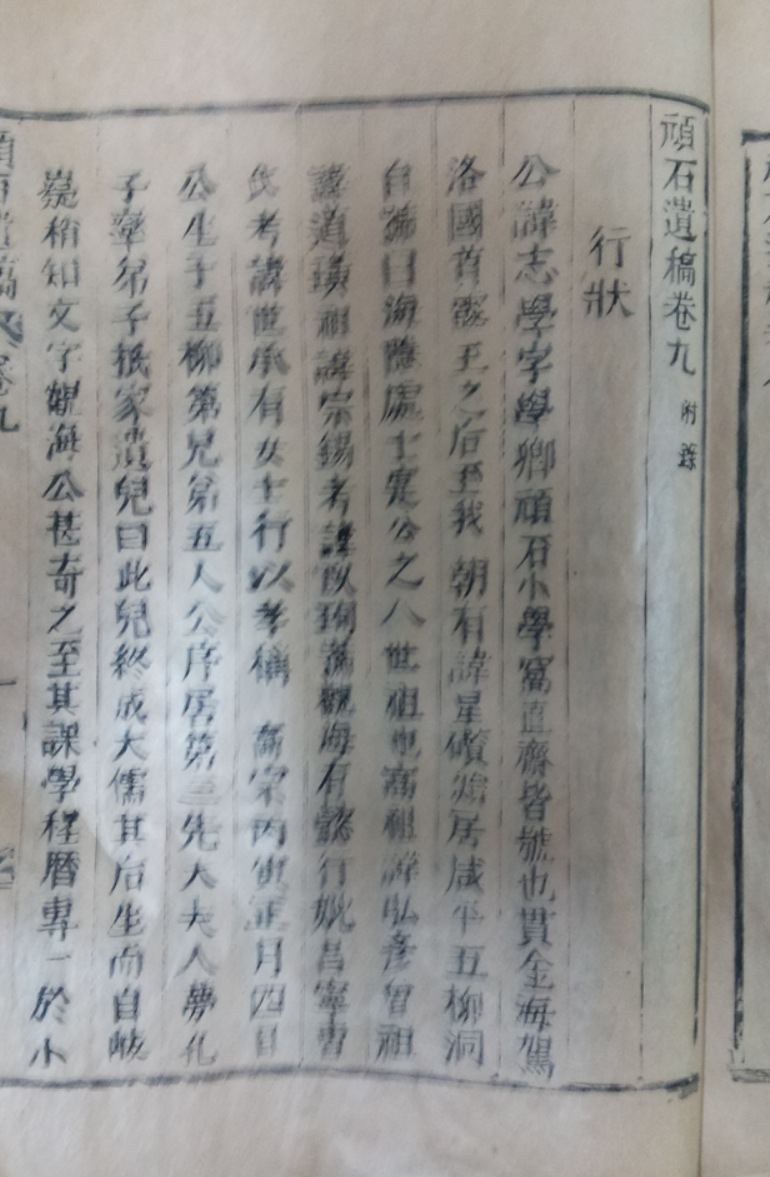 頑石遺稿卷九 附錄
行狀
公諱志學字學卿頑石小學窩直齋皆號也貫金海駕
洛國首露王之后至我 朝有諱星礩始居咸平五柳洞
自號曰海隱處士寔公之八世祖也高祖諱弘彦曾祖
諱道璜祖諱宗錫考諱以珣號觀海有懿行妣昌寧曹
氏考諱世承有女士行以孝稱 高宗丙寅正月四日
公生于五柳第兄弟五人公序居第三先大夫人夢化
子率弟子抵家遺兒曰此兒終成大儒其后生而自岐
嶷稍知文字觀海公甚奇之至其課學程曆專一於小
頑石遺稿 卷九